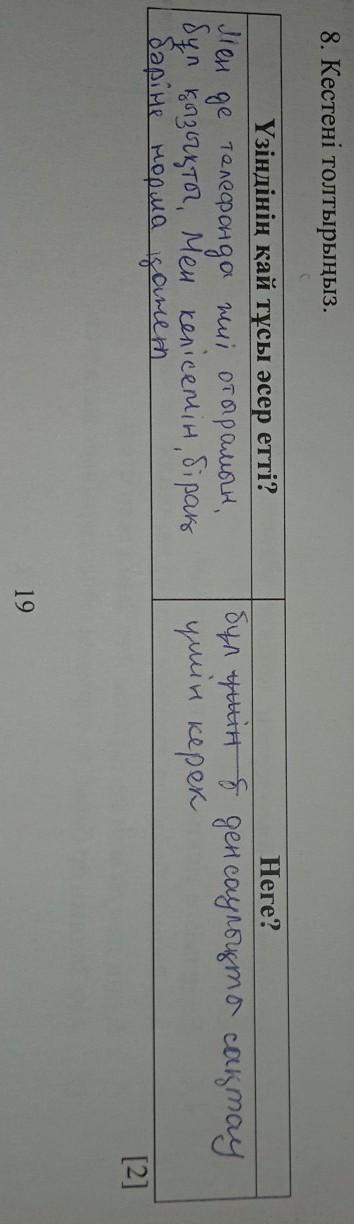 8. Кестені толтырыңыз.
Үзіндінің қай тұсы әсер етті?
Неге?
Мен де телефонда жиі отырамын,
бұл қызықты, Мен келісемін, бірақ
бәріне норма қажет
бұл үшін б денсаулықты сақтау
үшін керек
[2]
19